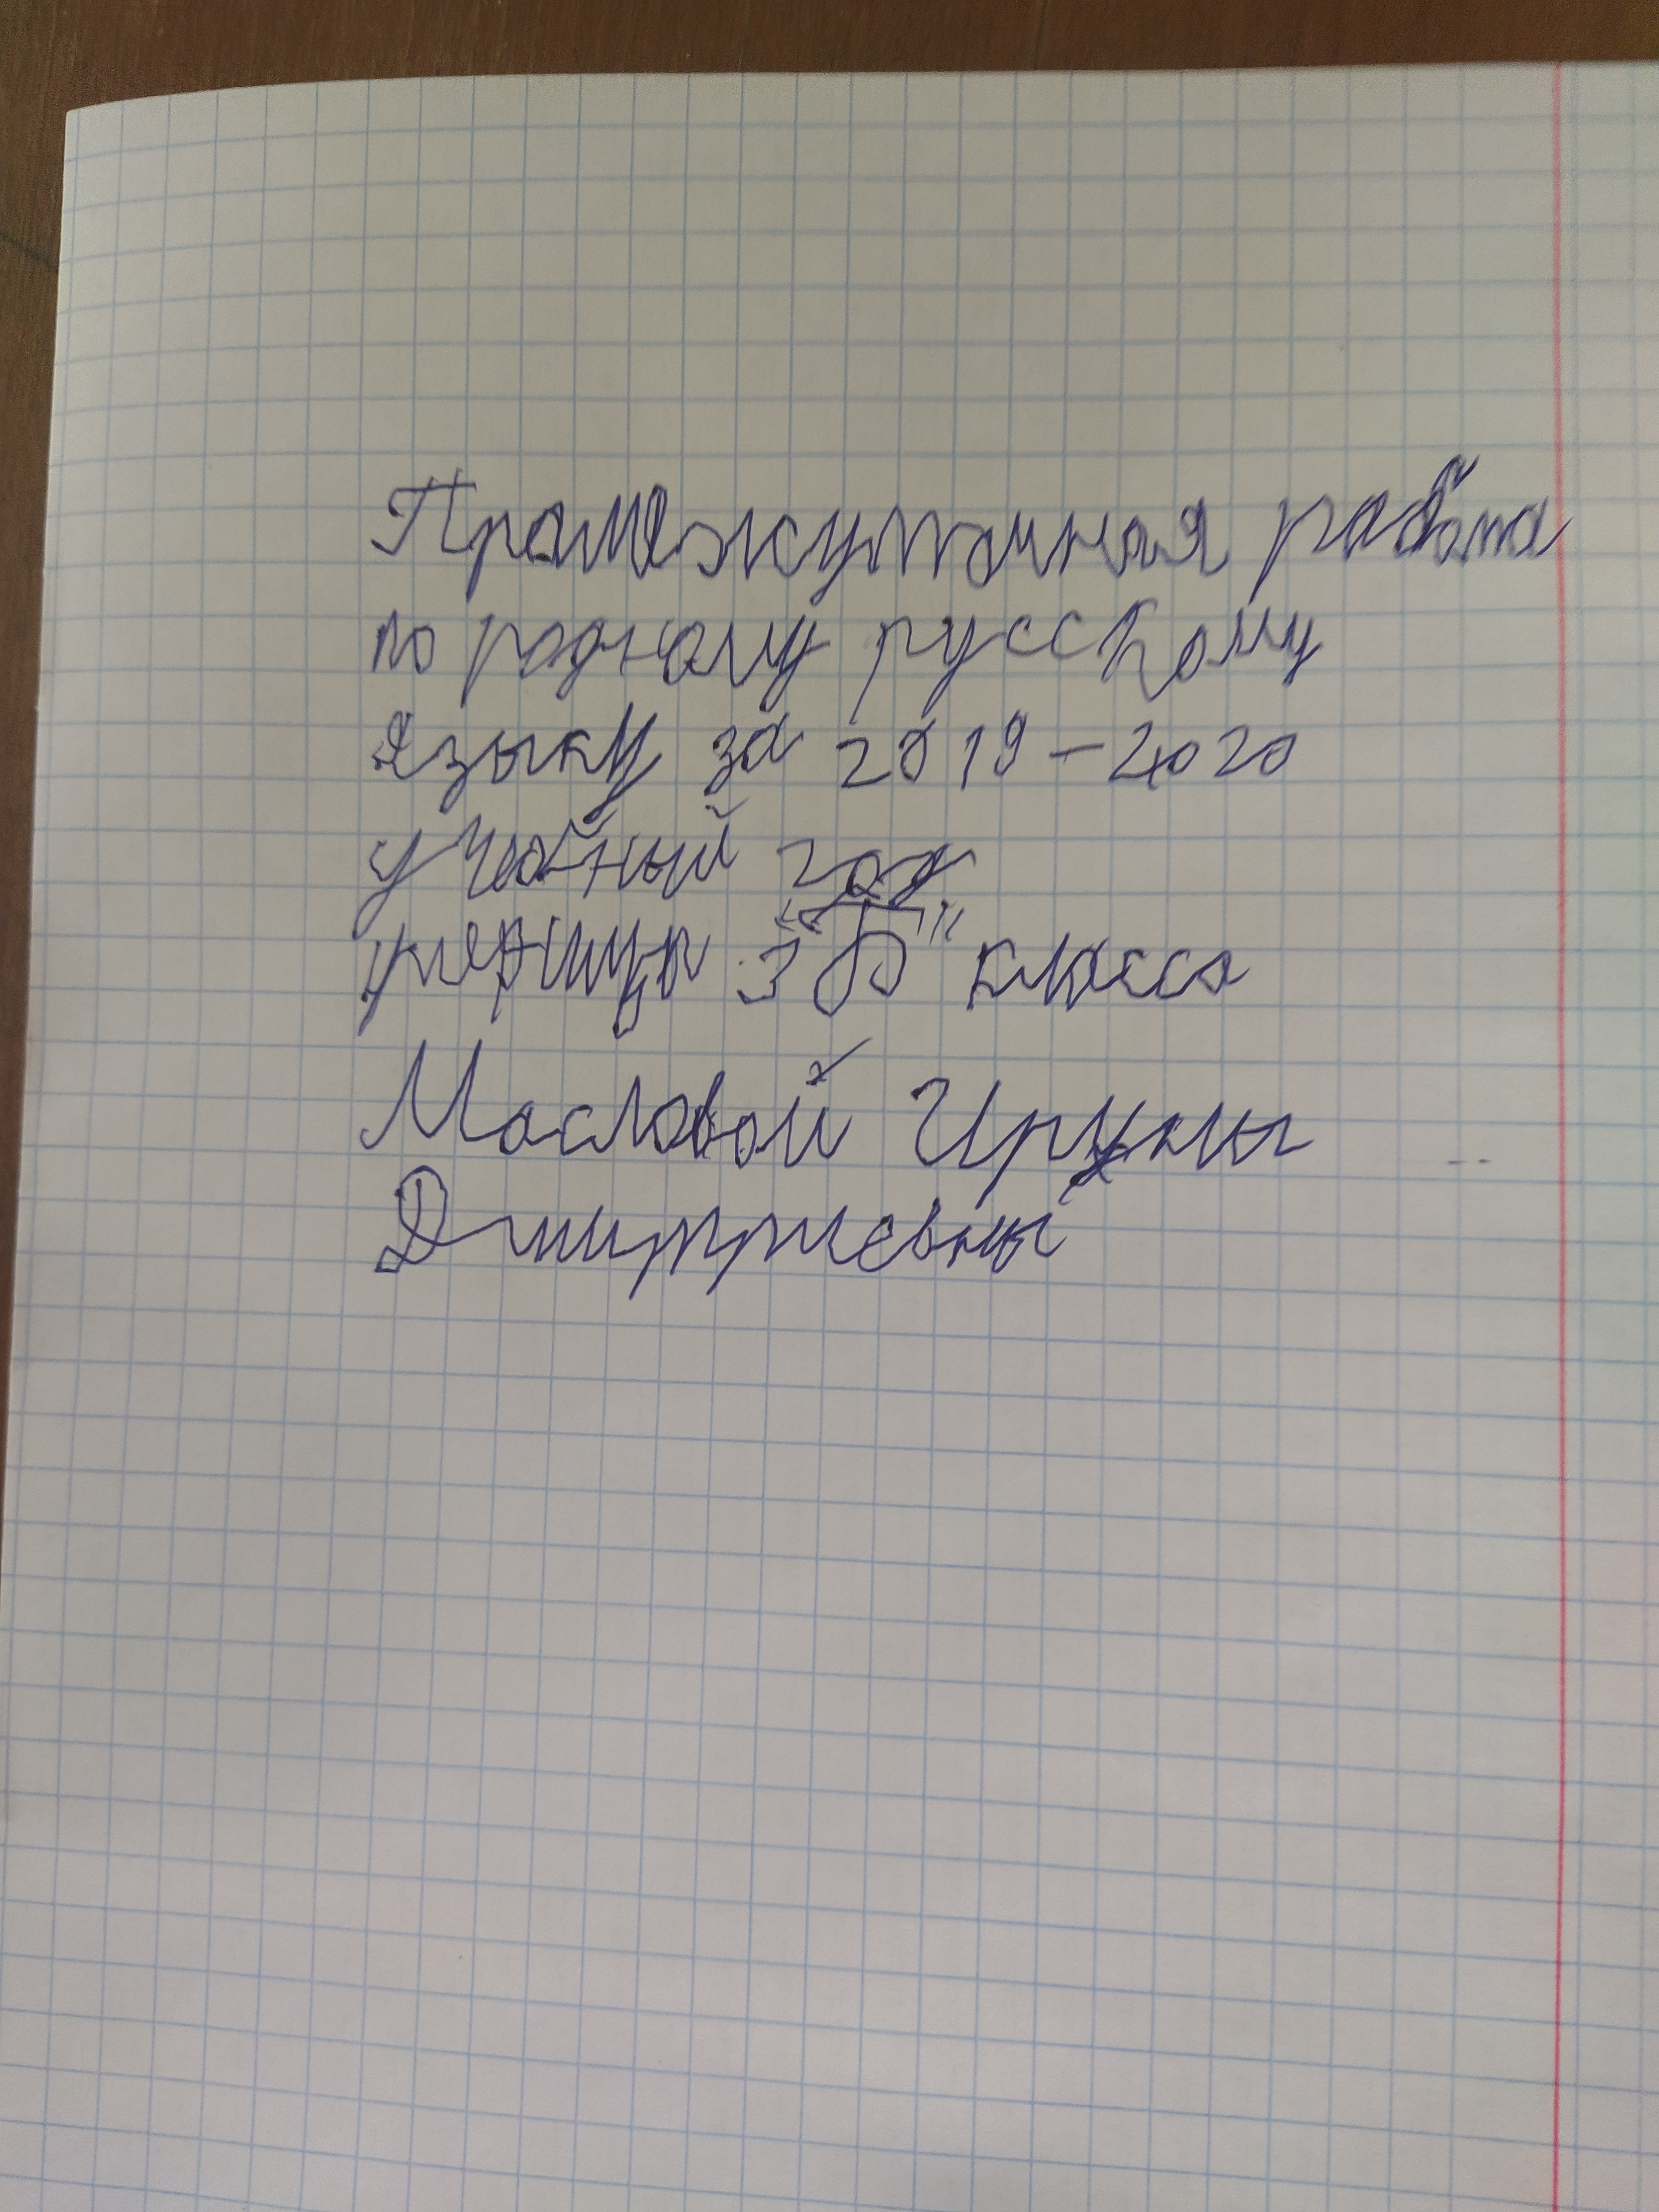 Промежуточная работа
по родному русскому
языку за 2019-2020
учебный год
ученицы 3 "Б" класса
Масловой Ирины
Дмитриевны